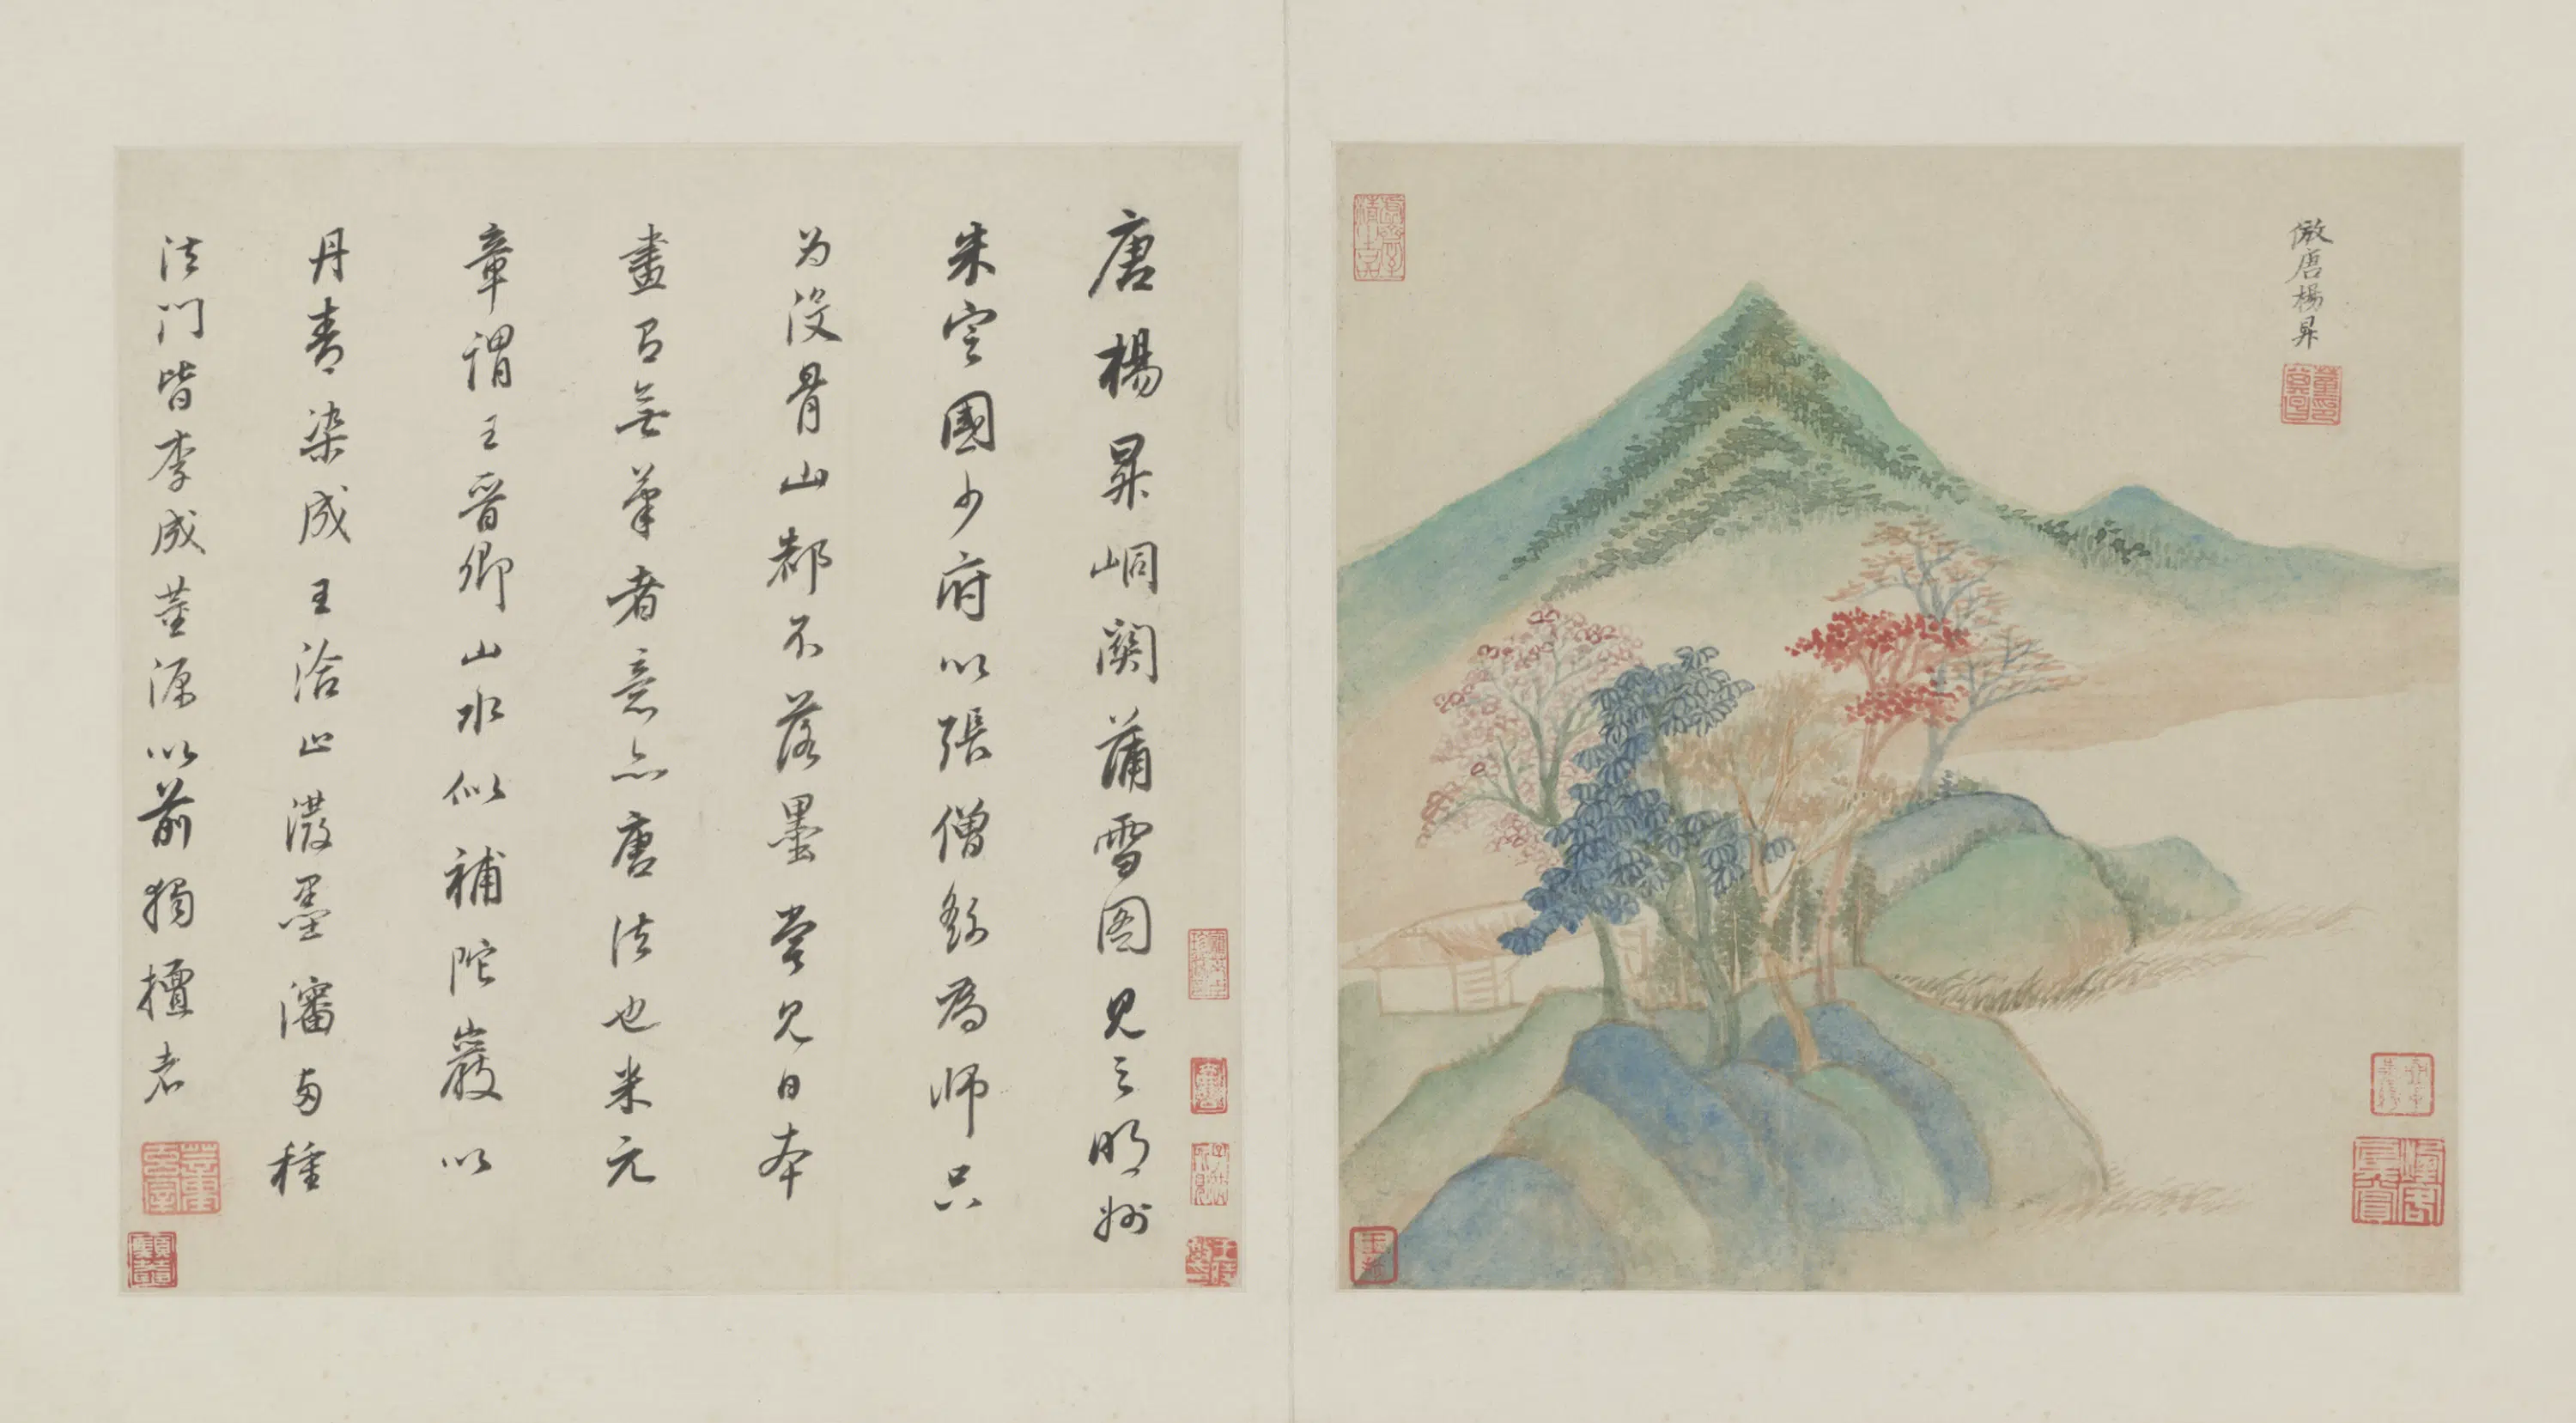 倣唐楊昇
唐楊昇峒関蒲雪图見之明州
朱定國少府以張僧繇為师只
为没骨山都不落墨嘗見日本
畫有無筆者意亦唐法也米元
章謂王晋卿山水似補陀巖以
丹青染成王洽止潑墨瀋两種
法门皆李成董源以前獨擅者